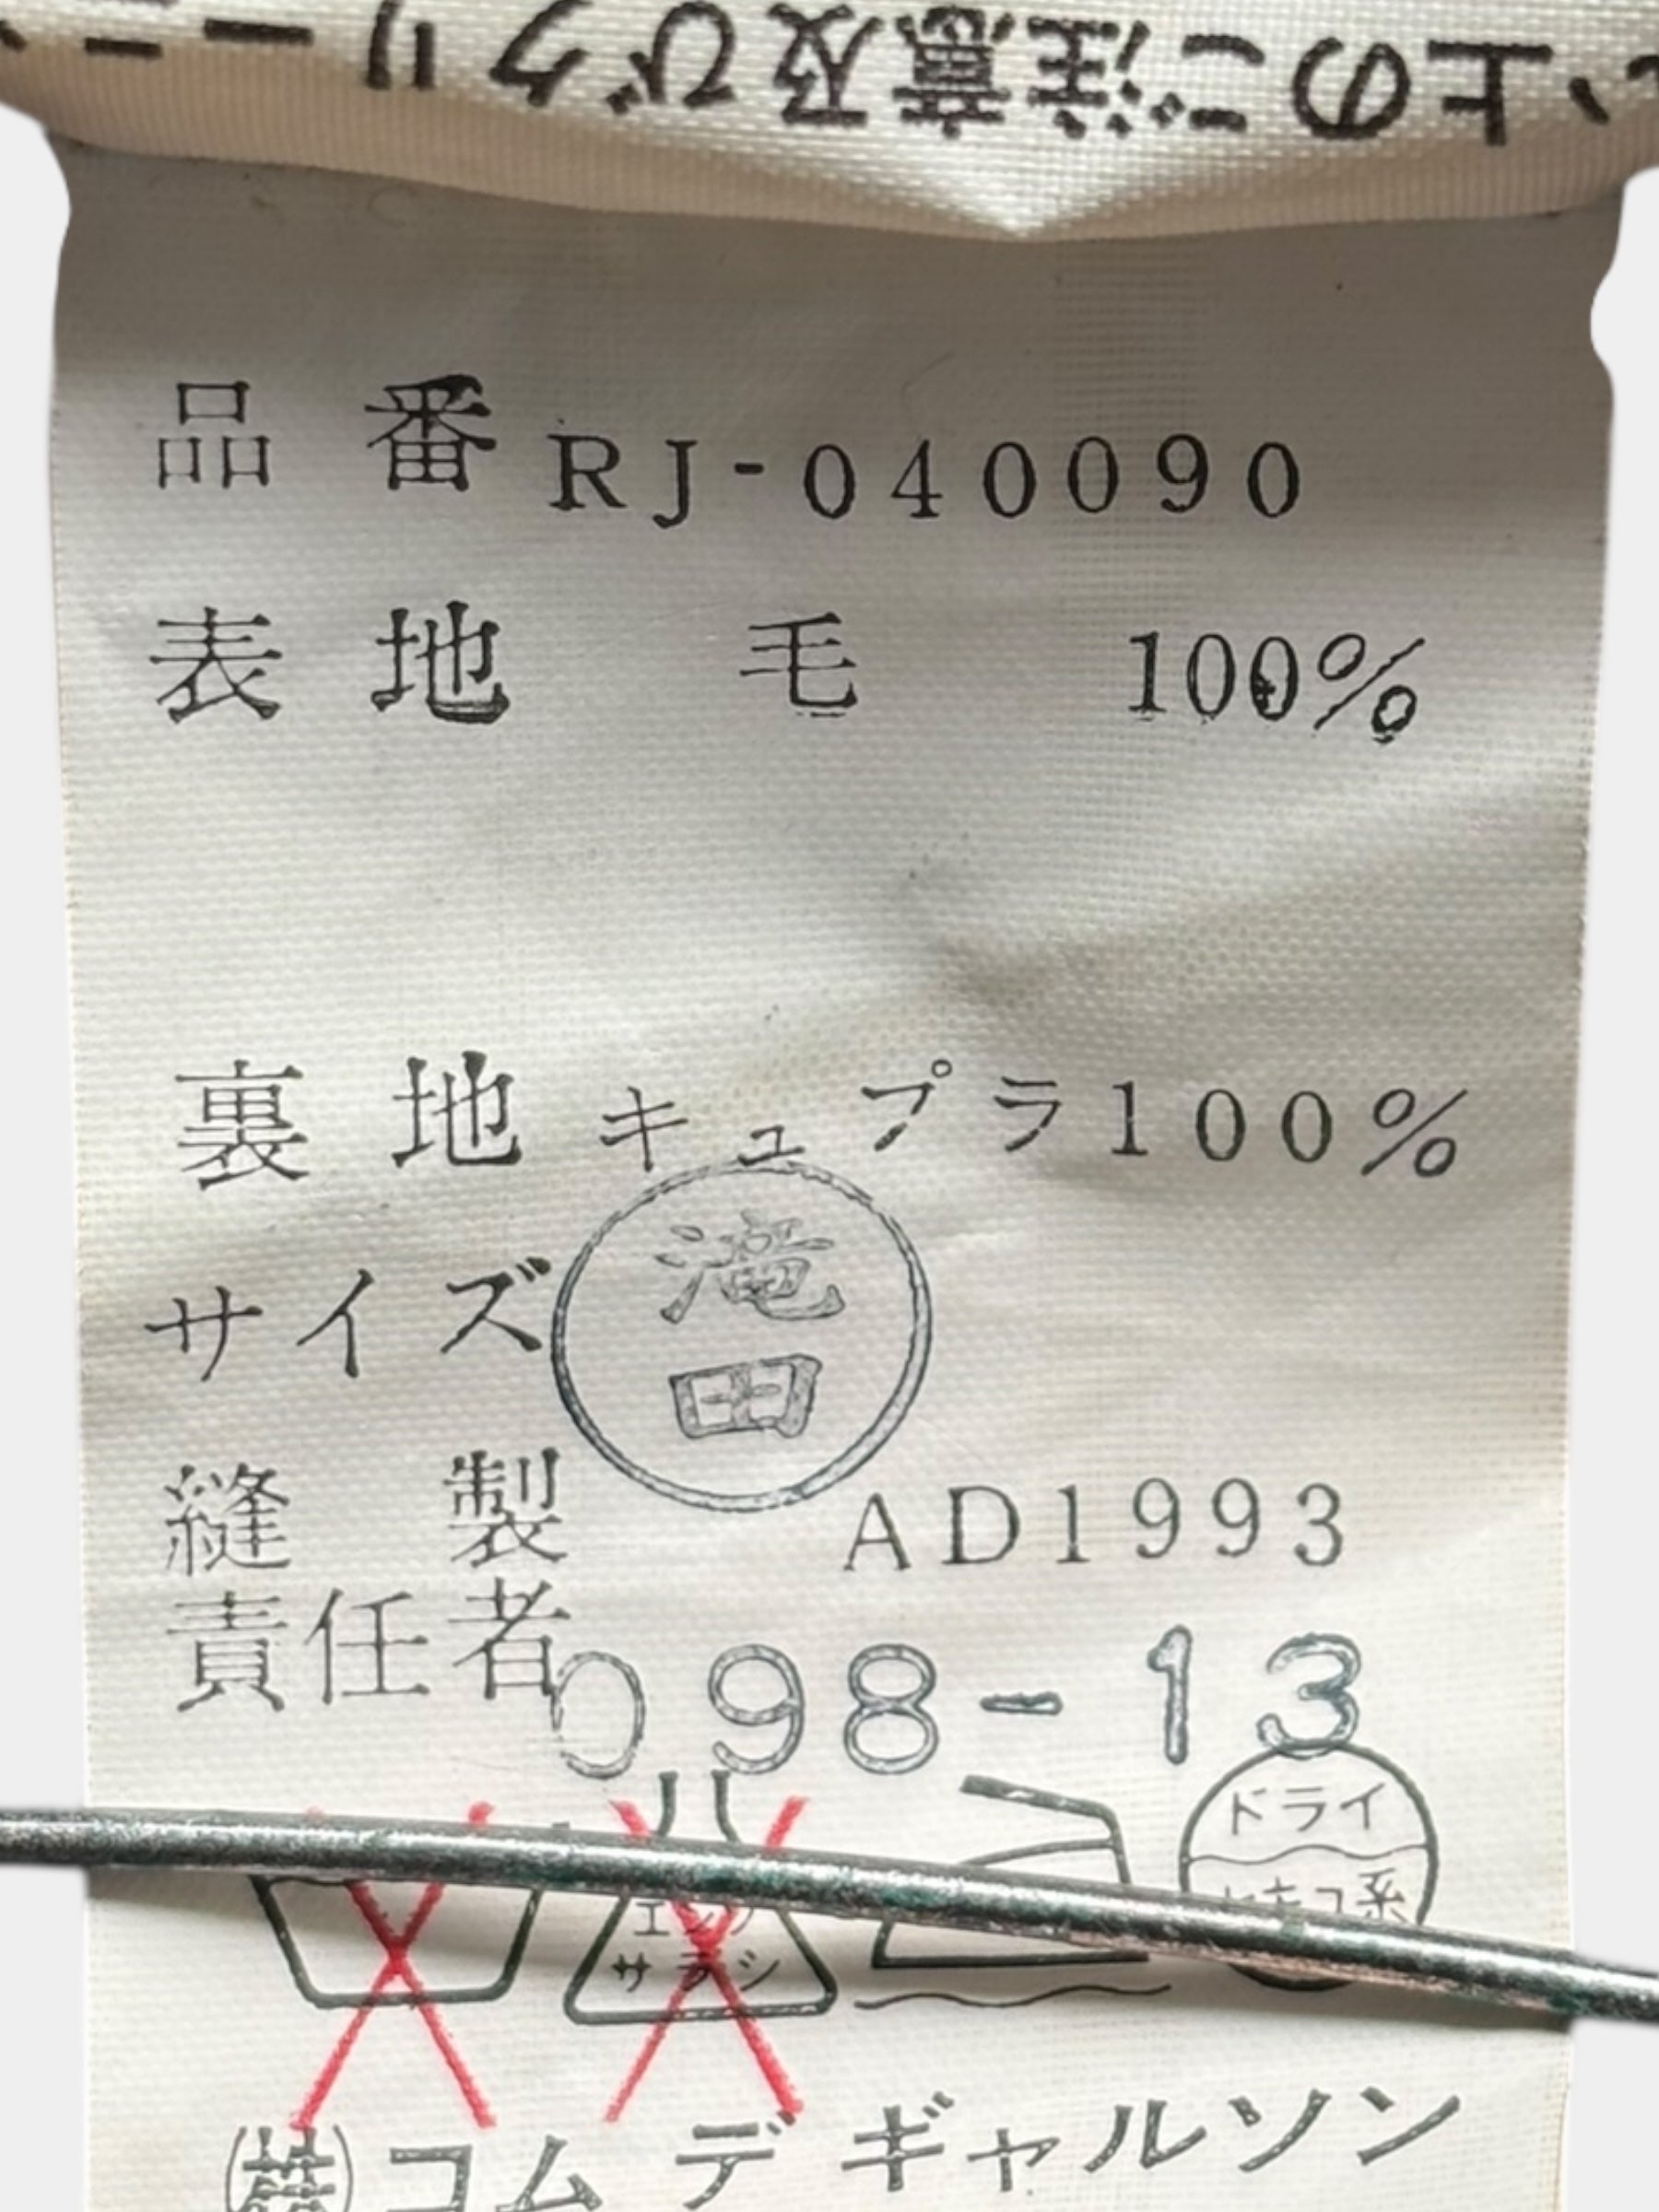 い上のご注意及びクリーニ
品番 RJ-040090
表地 毛 100%
裏地 キュプラ100%
サイズ
滝田
縫製
責任者
AD1993
098-13
ドライ
セキユ系
エンソ
サラシ
㈱コム デ ギャルソン